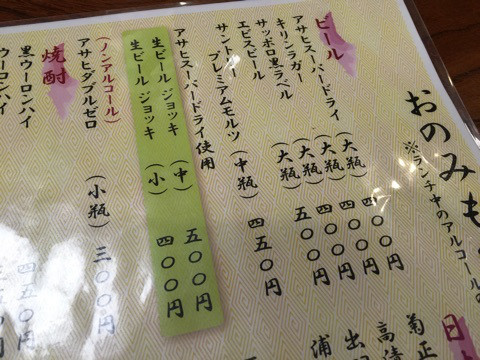 おのみも
※ランチ中のアルコールの
ビール
アサヒスーパードライ (大瓶) 四〇〇円
キリンラガー (大瓶) 四〇〇円
サッポロ黒ラベル (大瓶) 四〇〇円
エビスビール (大瓶) 五〇〇円
サントリー
プレミアムモルツ (中瓶) 四五〇円
アサヒスーパードライ使用
生ビール ジョッキ (中) 五〇〇円
生ビール ジョッキ (小) 四〇〇円
(ノンアルコール)
アサヒダブルゼロ (小瓶) 三〇〇円
焼酎
黒ウーロンハイ 四五〇円
ウーロンハイ
日
菊正
高清
出
浦